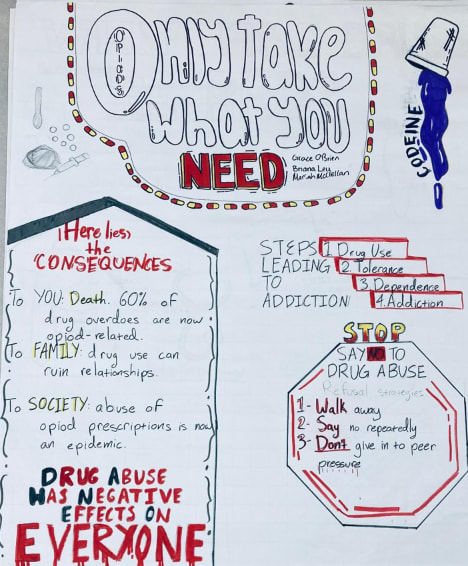 OPIODS
Only Take
what you
NEED
Grace O'Brien
Briana
CODEINE
Here lies
the
CONSEQUENCES
To YOU: Death. 60% of
drug overdoes are now
opiod-related.
To FAMILY: drug use can
ruin relationships.
To SOCIETY: abuse of
opiod prescriptions is now
an epidemic.
DRUG ABUSE
HAS NEGATIVE
EFFECTS ON
EVERYONE
STEPS
LEADING
TO
ADDICTION
1. Drug Use
2. Tolerance
3. Dependence
4. Addiction
STOP
SAY NO TO
DRUG ABUSE
Refusal strategies
1- Walk away
2- Say no repeatedly
3- Don't give in to peer
pressure